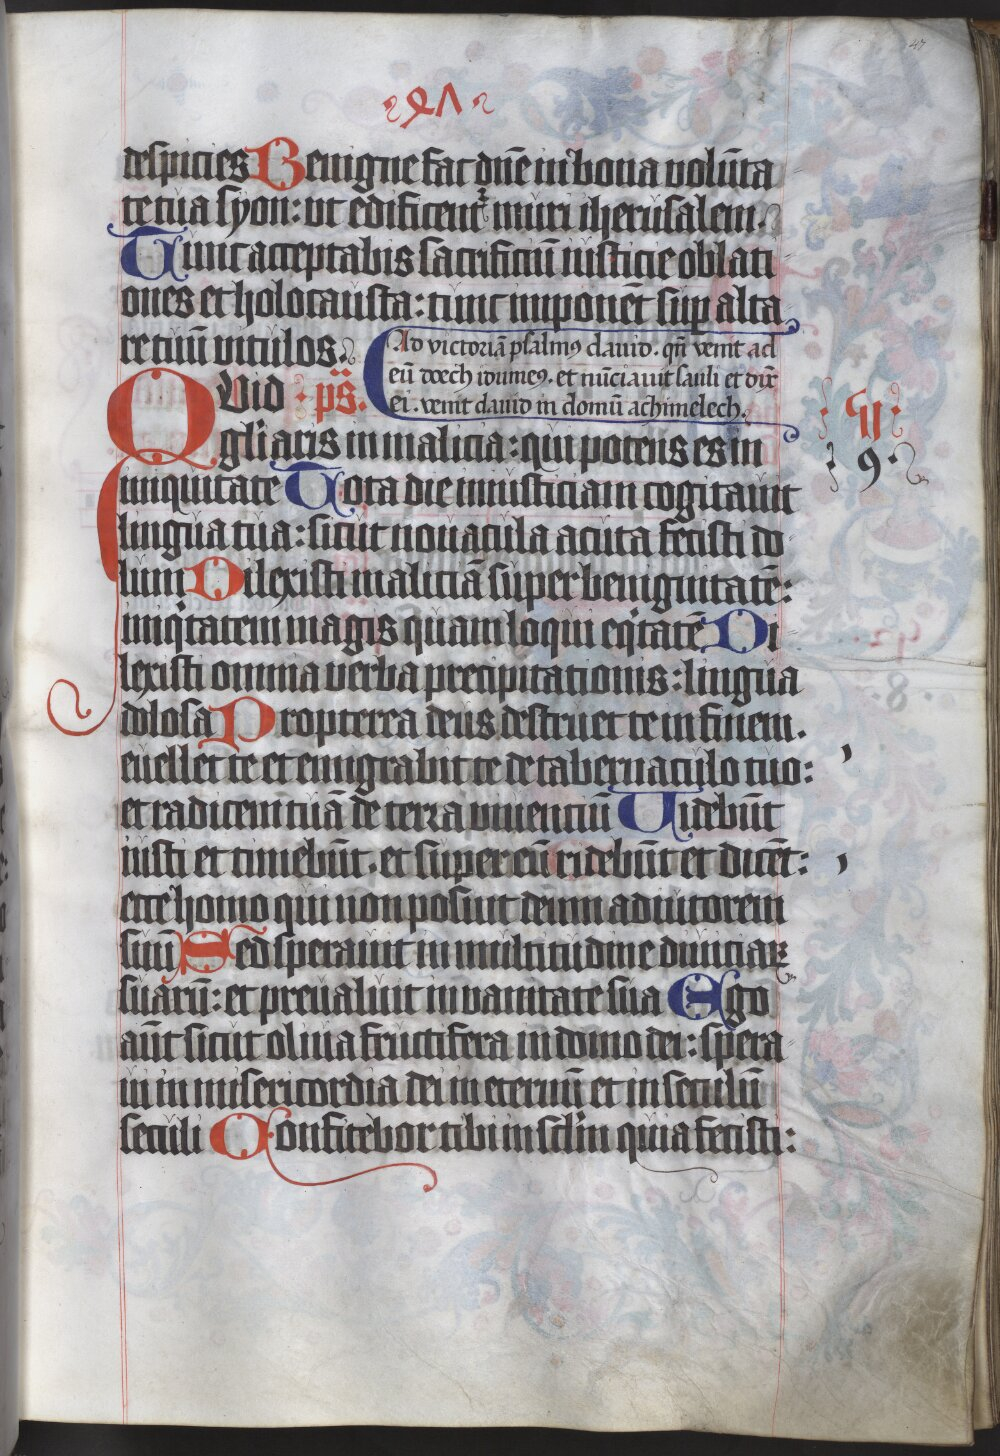 despicies Benigne fac dn̄e in bona volūta
te tua syon: ut edificent᷑ muri iherusalem.
Tunc acceptabis sacrificiū iusticie oblati
ones et holocausta: tunc imponēt suꝑ alta
re tuū vitulos.
Ad victoriā psalmꝰ dauid. qn̄ venit ad
eū doech idumeꝰ. et nūciauit sauli et dix̄
ei. venit dauid in domū achimelech.
QVid p̄s.
gl̄iaris in malicia: qui potens es in
iniquitate Tota die iniusticiam cogitauit
lingua tua: sicut nouacula acuta fecisti do
lum Dilexisti maliciā super benignitatē:
iniqͥtatem magis quam loqui eqͥtatē Di
lexisti omnia verba precipitationis: lingua
dolosa Propterea deus destruet te in finem.
euellet te et emigrabit te de tabernaculo tuo:
et radicem tuā de terra viuenciū Videbūt
iusti et timebūt. et super eū ridebūt et dicēt:
ecce homo qui non posuit deum adiutorem
suū Sed sperauit in multitudine diuiciaꝝ
suarū: et preualuit in vanitate sua Ego
aūt sicut oliua fructifera in domo dei: spera
ui in misericordia dei in eternū et in seculū
seculi Confitebor tibi in sc̄lm quia fecisti:
9.
47